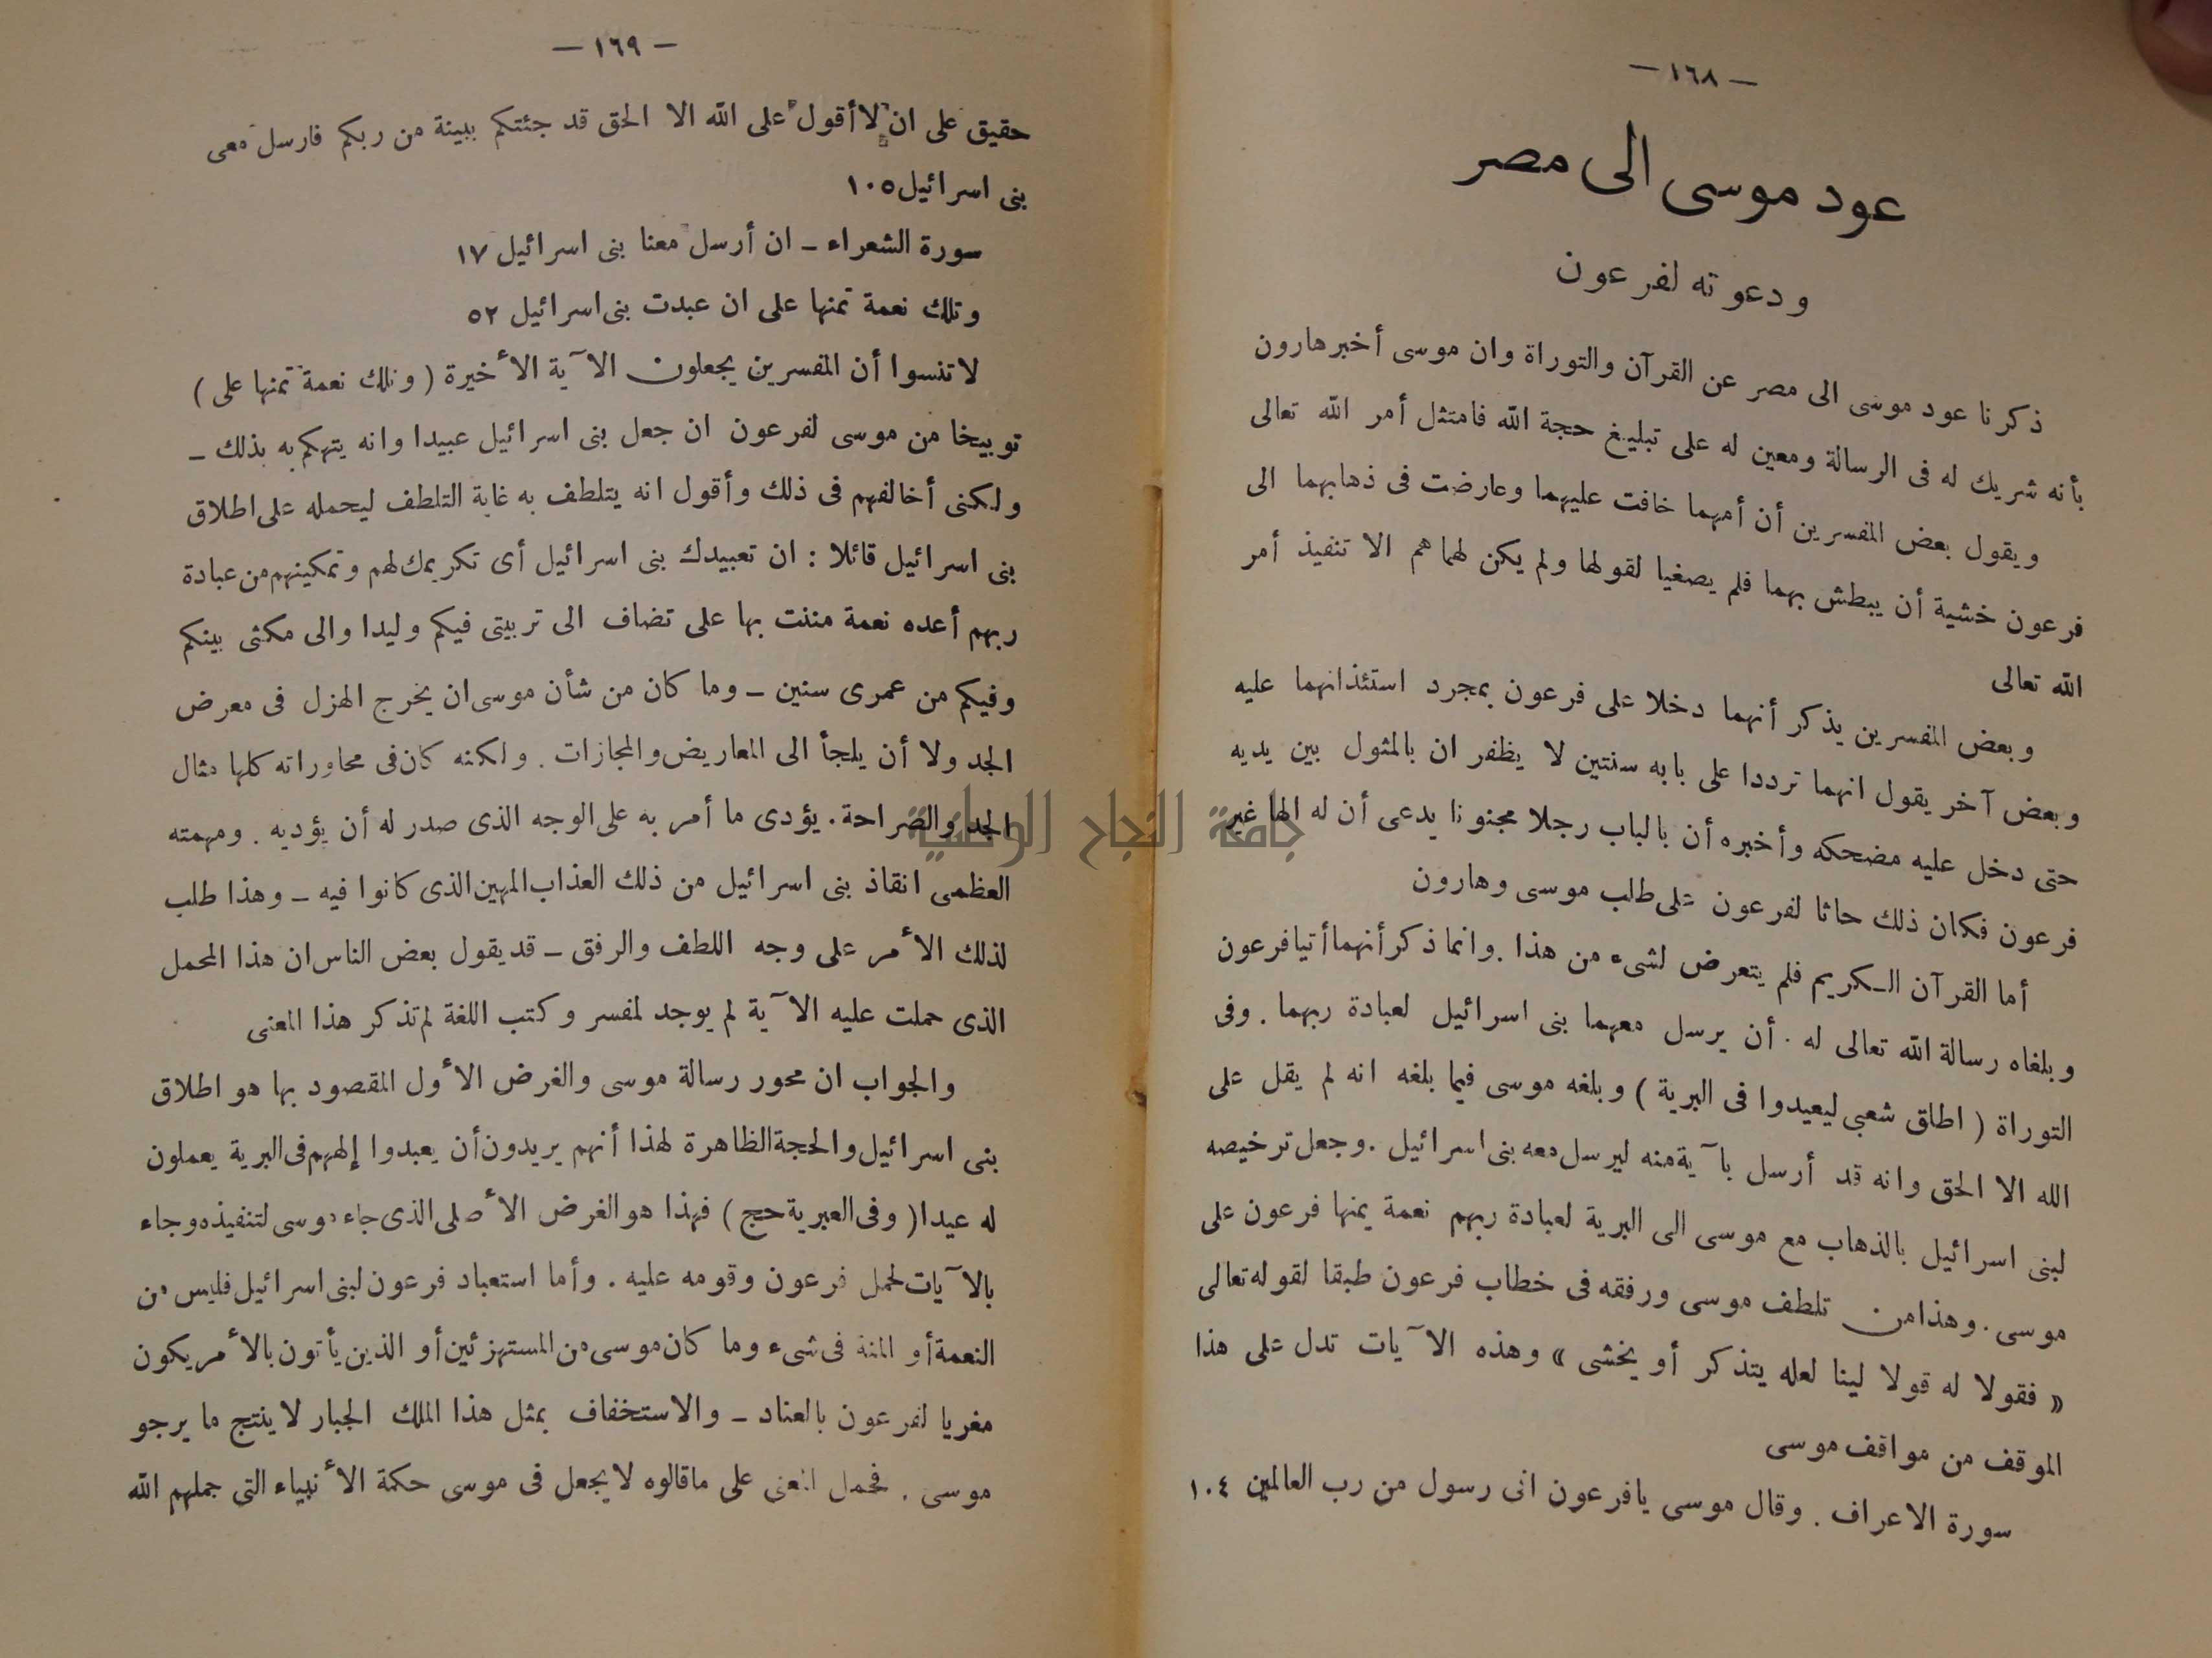 — ١٦٨ —
عود موسى الى مصر
ودعوته لفرعون
ذكرنا عود موسى الى مصر عن القرآن والتوراة وان موسى أخبر هارون
بأنه شريك له فى الرسالة ومعين له على تبليغ حجة الله فامتثل أمر الله تعالى
ويقول بعض المفسرين أن أمهما خافت عليهما وعارضت فى ذهابهما الى
فرعون خشية أن يبطش بهما فلم يصغيا لقولها ولم يكن لهما هم الا تنفيذ أمر
الله تعالى
وبعض المفسرين يذكر أنهما دخلا على فرعون بمجرد استئذانهما عليه
وبعض آخر يقول انهما ترددا على بابه سنتين لا يظفر ان بالمثول بين يديه
حتى دخل عليه مضحكه وأخبره أن بالباب رجلا مجنونا يدعى أن له الها غير
فرعون فكان ذلك حاثا لفرعون على طلب موسى وهارون
أما القرآن الكريم فلم يتعرض لشىء من هذا . وانما ذكر أنهما أتيا فرعون
وبلغاه رسالة الله تعالى له . أن يرسل معهما بنى اسرائيل لعبادة ربهما . وفى
التوراة ( اطلق شعبي ليعيدوا فى البرية ) وبلغه موسى فيما بلغه انه لم يقل على
الله الا الحق وانه قد أرسل بآية منه ليرسل معه بنى اسرائيل . وجعل ترخيصه
لبنى اسرائيل بالذهاب مع موسى الى البرية لعبادة ربهم نعمة يمنها فرعون على
موسى . وهذا من تلطف موسى ورفقه فى خطاب فرعون طبقا لقوله تعالى
« فقولا له قولا لينا لعله يتذكر أو يخشى » وهذه الآيات تدل على هذا
الموقف من مواقف موسى
سورة الاعراف . وقال موسى يافرعون انى رسول من رب العالمين ١٠٤
— ١٦٩ —
حقيق على ان لا أقول على الله الا الحق قد جئتكم ببينة من ربكم فارسل معى
بنى اسرائيل ١٠٥
سورة الشعراء ــ ان أرسل معنا بنى اسرائيل ١٧
وتلك نعمة تمنها على ان عبدت بنى اسرائيل ٥٢
لا تنسوا أن المفسرين يجعلون الآية الأخيرة ( وتلك نعمة تمنها على )
توبيخا من موسى لفرعون ان جعل بنى اسرائيل عبيدا وانه يتهكم به بذلك ــ
ولكنى أخالفهم فى ذلك وأقول انه يتلطف به غاية التلطف ليحمله على اطلاق
بنى اسرائيل قائلا : ان تعبيدك بنى اسرائيل أى تكريمك لهم وتمكينهم من عبادة
ربهم أعده نعمة مننت بها على تضاف الى تربيتى فيكم وليدا والى مكثى بينكم
وفيكم من عمرى سنين ــ وما كان من شأن موسى ان يخرج الهزل فى معرض
الجد ولا أن يلجأ الى المعاريض والمجازات . ولكنه كان فى محاوراته كلها مثال
الجد والصراحة . يؤدى ما أمر به على الوجه الذى صدر له أن يؤديه . ومهمته
العظمى انقاذ بنى اسرائيل من ذلك العذاب المهين الذى كانوا فيه ــ وهذا طلب
لذلك الأمر على وجه اللطف والرفق ــ قد يقول بعض الناس ان هذا المحمل
الذى حملت عليه الآية لم يوجد لمفسر وكتب اللغة لم تذكر هذا المعنى
والجواب ان محور رسالة موسى والغرض الأول المقصود بها هو اطلاق
بنى اسرائيل والحجة الظاهرة لهذا أنهم يريدون أن يعبدوا إلههم فى البرية يعملون
له عيدا ( وفى العبرية حج ) فهذا هو الغرض الأصلى الذى جاء موسى لتنفيذه وجاء
بالآيات لحمل فرعون وقومه عليه . وأما استعباد فرعون لبنى اسرائيل فليس من
النعمة أو المنة فى شىء وما كان موسى من المستهزئين أو الذين يأتون بالأمر يكون
مغريا لفرعون بالعناد ــ والاستخفاف بمثل هذا الملك الجبار لا ينتج ما يرجو
موسى . فحمل المعنى على ماقالوه لا يجعل فى موسى حكمة الأنبياء التى جملهم الله
جامعة النجاح الوطنية